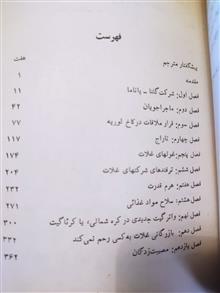 فهرست
پیشگفتار مترجم هفت
مقدمه ۱
فصل اول: شرکت گلتا ـ پاناما ۱۱
فصل دوم: ماجراجویان ۴۲
فصل سوم: قرار ملاقات در کاخ لوریه ۷۷
فصل چهارم: تاراج ۱۱۷
فصل پنجم: غولهای غلات ۱۷۴
فصل ششم: ترفندهای شرکتهای غلات ۲۰۴
فصل هفتم: هرم قدرت ۲۳۲
فصل هشتم: سلاح مواد غذائی ۲۷۱
فصل نهم: واترگیت جدیدی در کره شمالی، یا کرئاگیت ۳۰۰
فصل دهم: بازرگانی غلات به کسی رحم نمی کند ۳۳۲
فصل یازدهم: مصیبت زدگان ۳۶۲